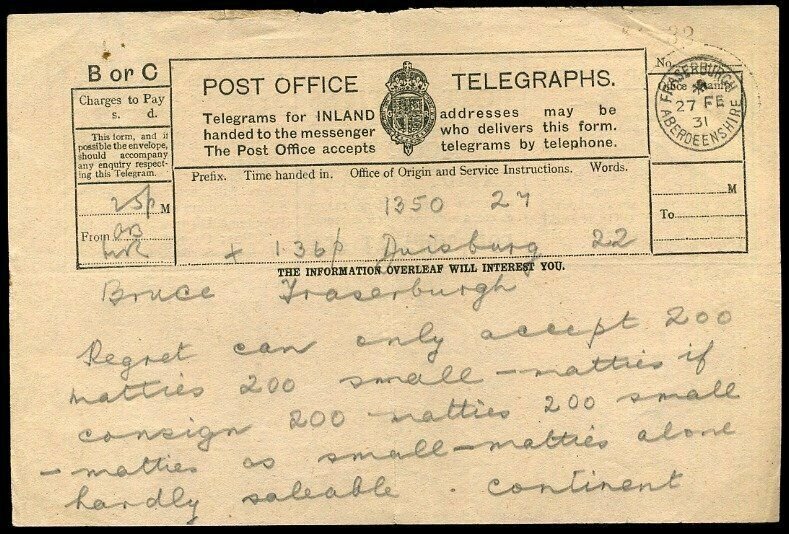 B or C
Charges to Pay
s. d.
This form, and if
possible the envelope,
should accompany
any enquiry respect-
ing this Telegram.
M
From
POST OFFICE TELEGRAPHS.
Telegrams for INLAND addresses may be
handed to the messenger who delivers this form.
The Post Office accepts telegrams by telephone.
No.
Office Stamp
FRASERBURGH
27 FE
31
ABERDEENSHIRE
Prefix. Time handed in. Office of Origin and Service Instructions. Words.
M
To
1350 27
+ 1.36p Duisburg 22
THE INFORMATION OVERLEAF WILL INTEREST YOU.
Bruce Fraserburgh
Regret can only accept 200
matties 200 small - matties if
consign 200 matties 200 small
- matties as small - matties alone
hardly saleable . continent